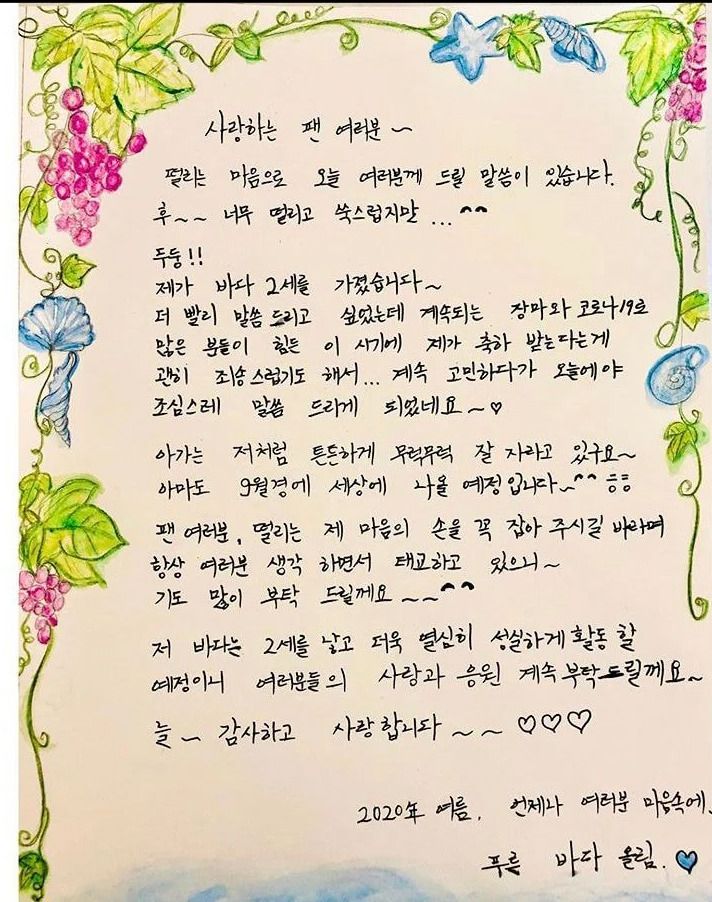 사랑하는 팬 여러분 ~
떨리는 마음으로 오늘 여러분께 드릴 말씀이 있습니다.
후~~ 너무 떨리고 쑥스럽지만 ... ^^
두둥!!
제가 바다 2세를 가졌습니다~
더 빨리 말씀 드리고 싶었는데 계속되는 장마와 코로나19로
많은 분들이 힘든 이 시기에 제가 축하 받는다는게
괜히 죄송스럽기도 해서... 계속 고민하다가 오늘에야
조심스레 말씀 드리게 되었네요~♡
아가는 저처럼 튼튼하게 무럭무럭 잘 자라고 있구요~
아마도 9월경에 세상에 나올 예정입니다~^^ ㅎㅎ
팬 여러분, 떨리는 제 마음의 손을 꼭 잡아 주시길 바라며
항상 여러분 생각 하면서 태교하고 있으니~
기도 많이 부탁 드릴께요 ~~^^
저 바다는 2세를 낳고 더욱 열심히 성실하게 활동 할
예정이니 여러분들의 사랑과 응원 계속 부탁드릴께요~
늘~ 감사하고 사랑합니다 ~~ ♡♡♡
2020年 여름. 언제나 여러분 마음속에.
푸른 바다 올림. ♡